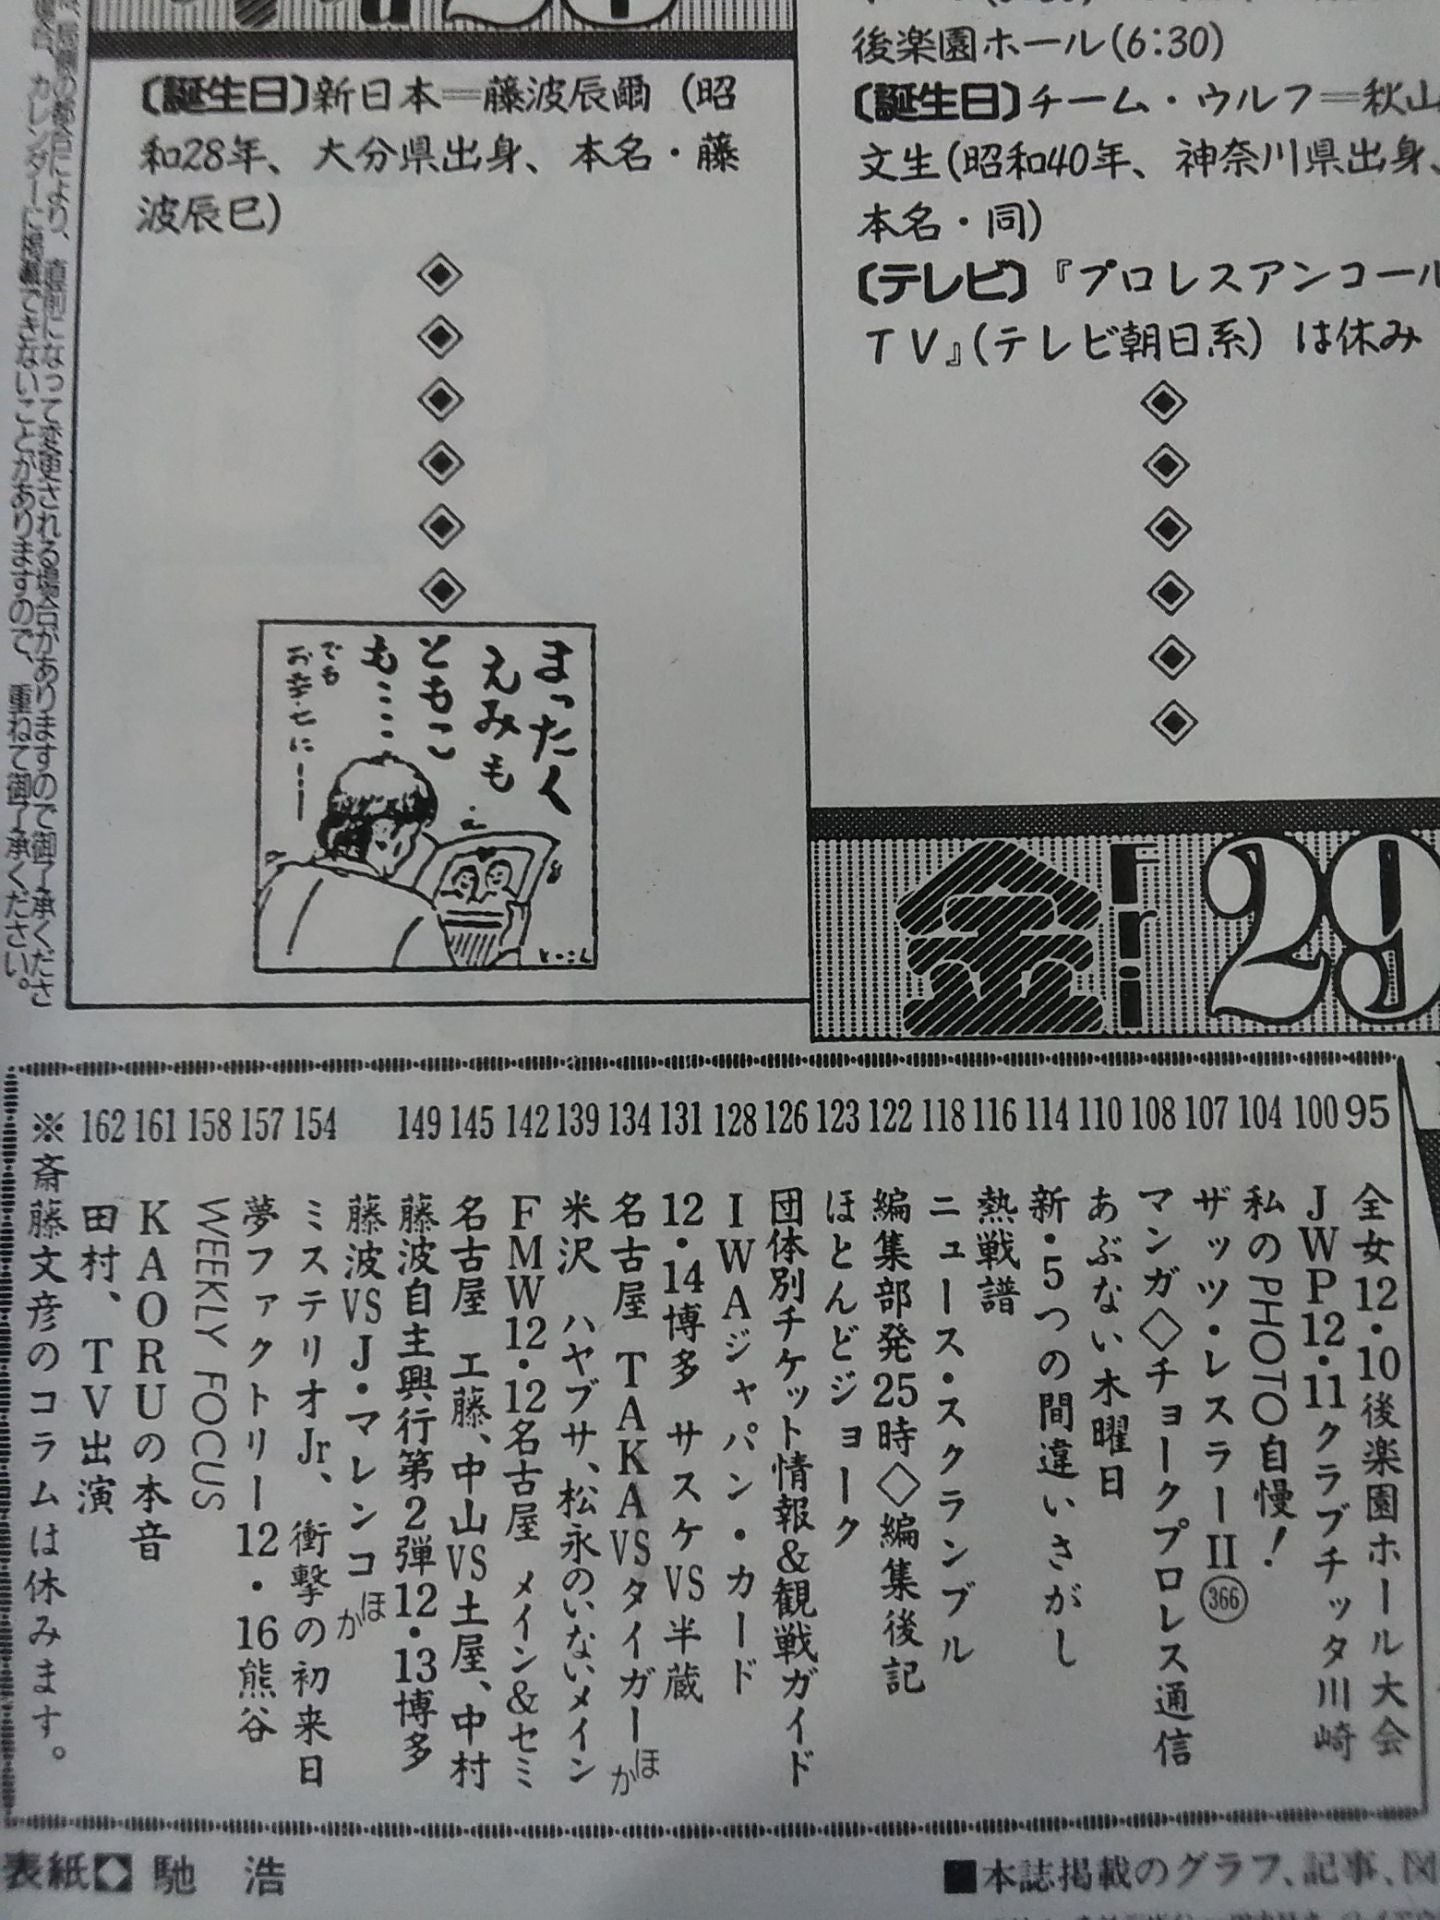 後楽園ホール(6:30)
〔誕生日〕チーム・ウルフ＝秋山
文生(昭和40年、神奈川県出身、
本名・同)
〔テレビ〕『プロレスアンコール
ＴＶ』(テレビ朝日系) は休み
金 Fri 29
〔誕生日〕新日本＝藤波辰爾 (昭
和28年、大分県出身、本名・藤
波辰巳)
まったく
えみも
ともこ
も……
でも
お幸せに――
とーこん
の都合により、直前になって変更される場合がありますので御了承くださ
カレンダーに掲載できないことがありますので、重ねて御了承ください。
95 全女12・10後楽園ホール大会
100 ＪＷＰ12・11クラブチッタ川崎
104 私のPHOTO自慢！
107 ザッツ・レスラーⅡ 366
108 マンガ◇チョークプロレス通信
110 あぶない木曜日
114 新・5つの間違いさがし
116 熱戦譜
118 ニュース・スクランブル
122 編集部発25時◇編集後記
123 ほとんどジョーク
126 団体別チケット情報＆観戦ガイド
128 ＩＷＡジャパン・カード
131 12・14博多 サスケVS半蔵
134 名古屋 ＴＡＫＡVSタイガーほか
139 米沢 ハヤブサ、松永のいないメイン
142 ＦＭＷ12・12名古屋 メイン＆セミ
145 名古屋 工藤、中山VS土屋、中村
149 藤波自主興行第2弾12・13博多
藤波VSＪ・マレンコほか
154 ミステリオJr、衝撃の初来日
157 夢ファクトリー12・16熊谷
158 WEEKLY FOCUS
161 ＫＡＯＲＵの本音
162 田村、ＴＶ出演
※斎藤文彦のコラムは休みます。
表紙◆馳 浩
■本誌掲載のグラフ、記事、図